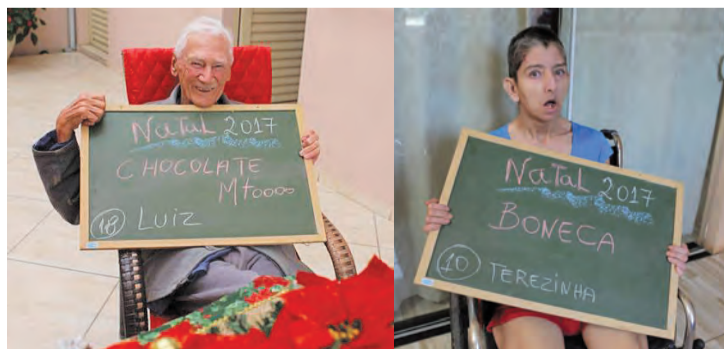 NATAL 2017
CHOCOLATE
Mtoooo
18 LUIZ
NATAL 2017
BONECA
10 TEREZINHA